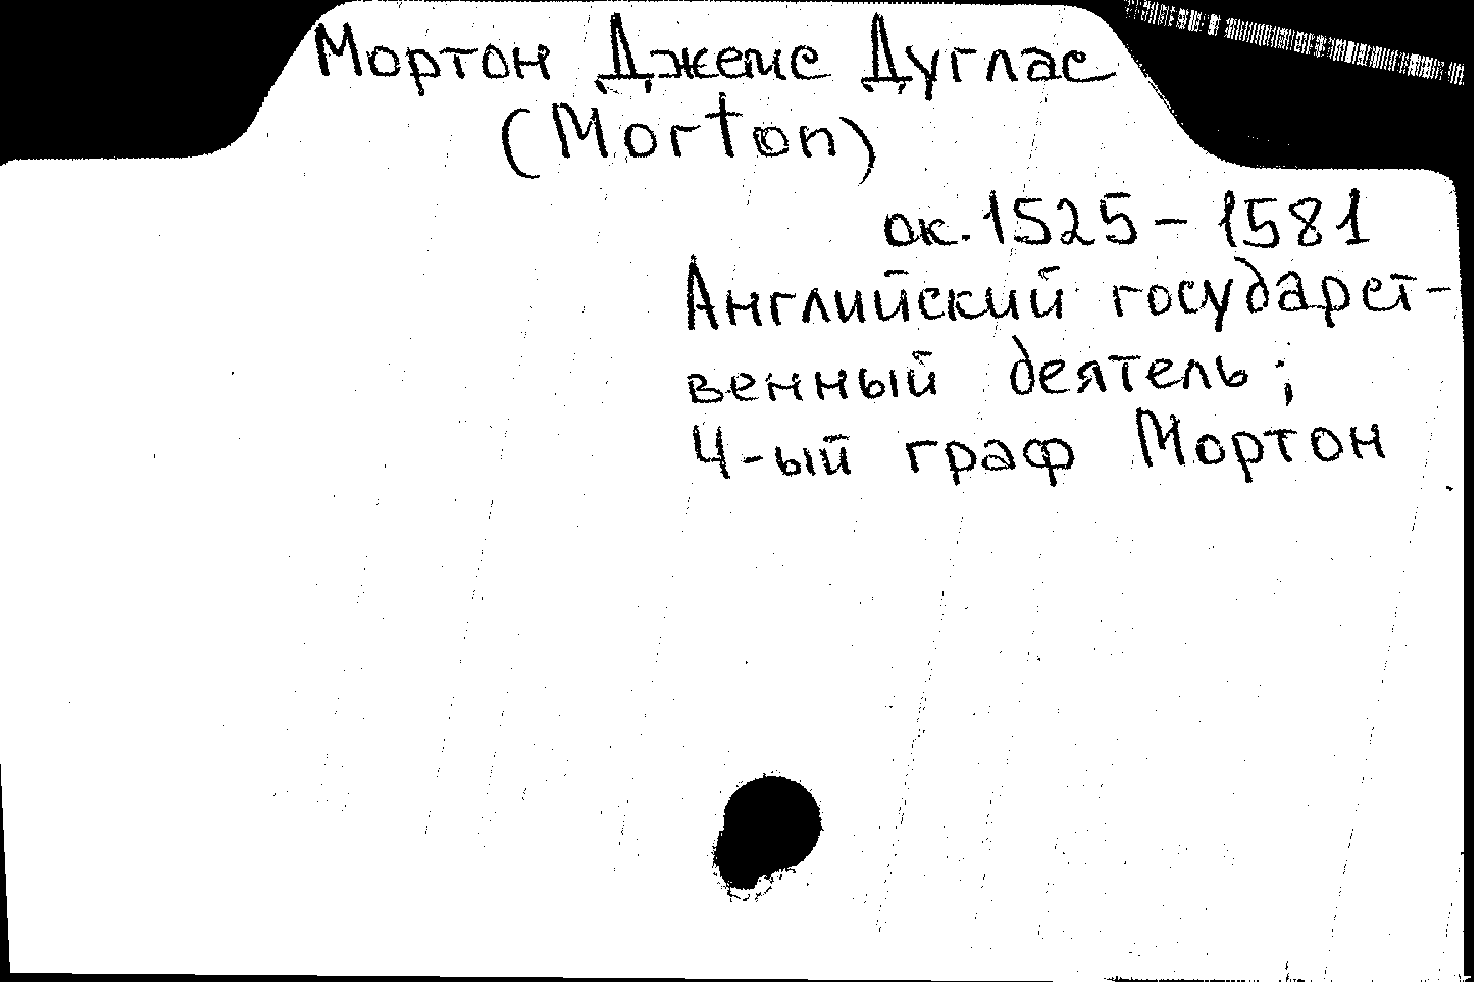 Мортон Джемс Дуглас
(Morton)
ок. 1525 – 1581
Английский государст-
венный деятель;
4-ый граф Мортон